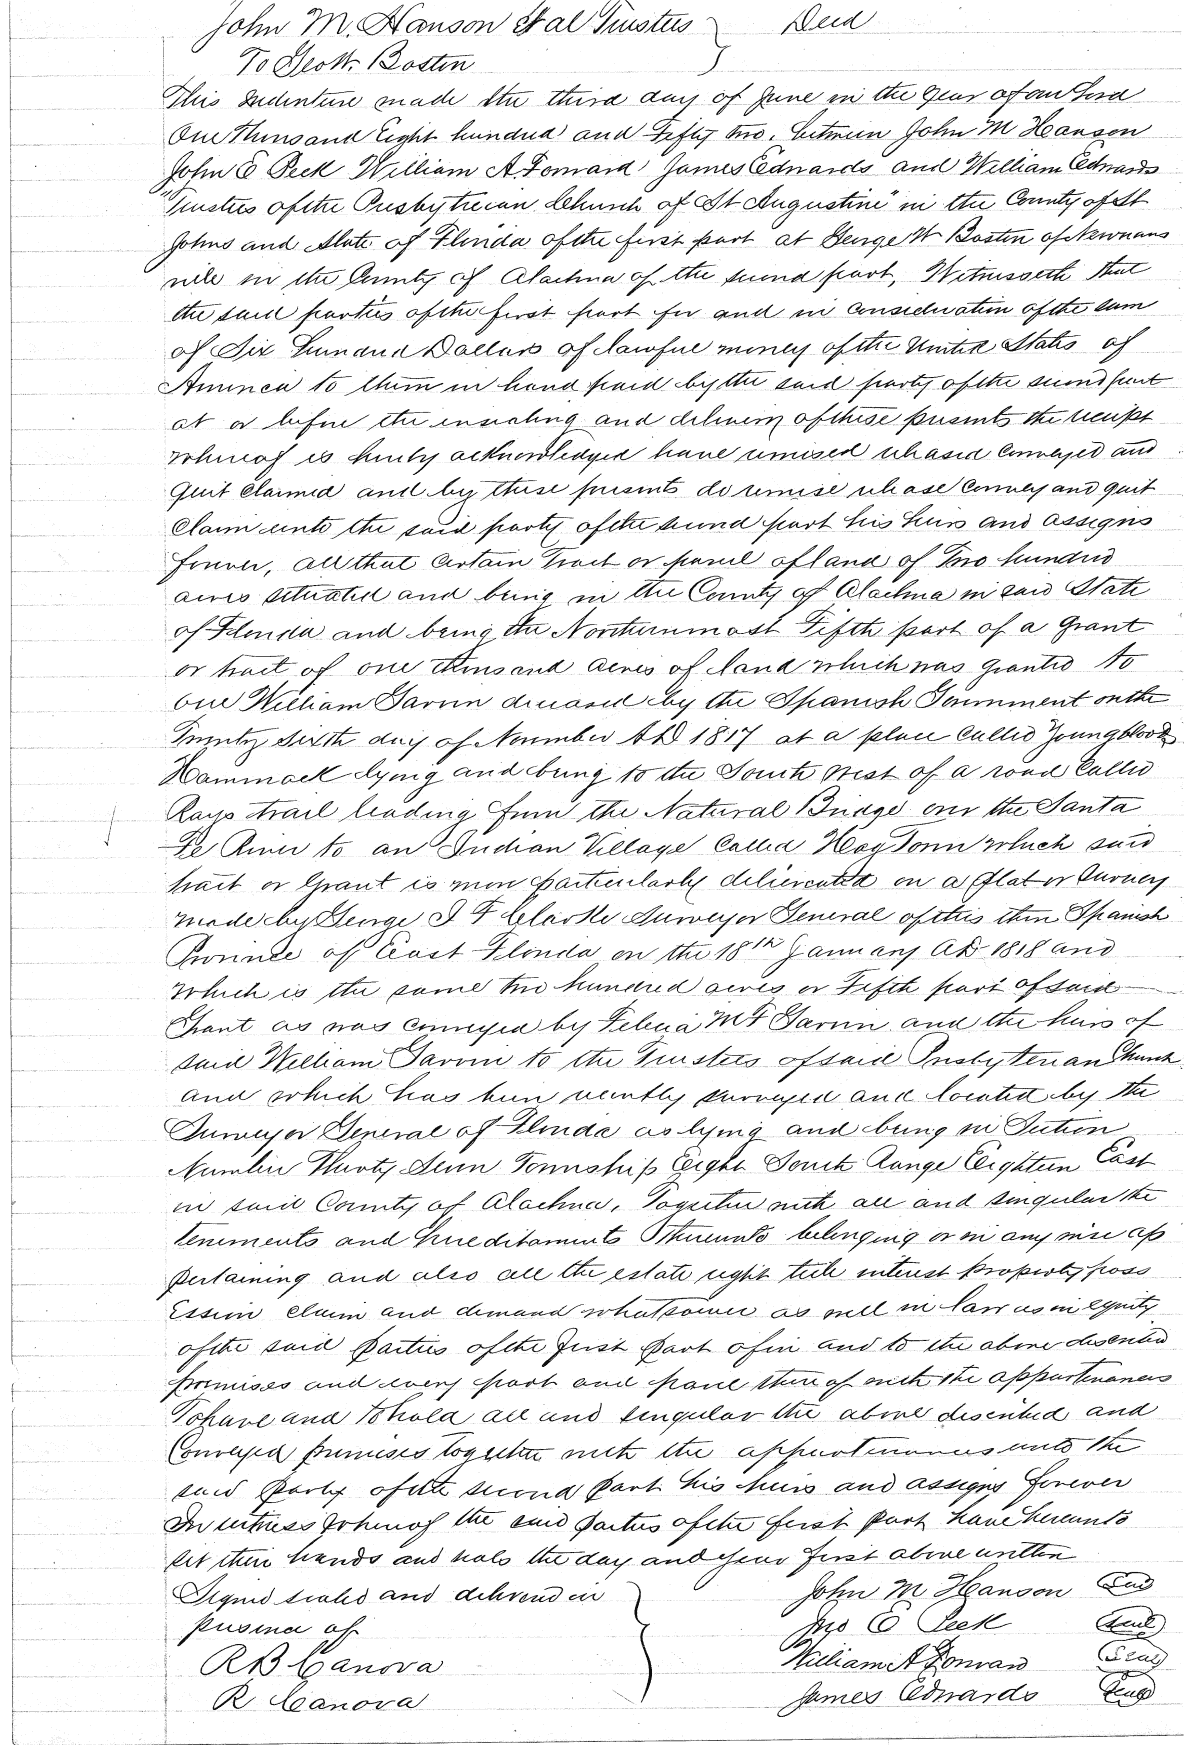 John M. Hanson Et al Trustees Deed
To Geo W. Bostin
This Indenture made the third day of June in the Year of our Lord
One Thousand Eight hundred and Fifty two. between John M Hanson
John E Peck William A Forward James Edwards and William Edwards
"Trustees of the Presbyterian Church of St Augustine" in the County of St
Johns and State of Florida of the first part at George W Bostin of Newnans
ville in the County of Alachua of the second part, Witnesseth that
the said parties of the first part for and in consideration of the sum
of Six hundred Dollars of lawful money of the United States of
America to them in hand paid by the said party of the second part
at or before the ensealing and delivery of these presents the receipt
whereof is hereby acknowledged have remised released Conveyed and
Quit Claimed and by these presents do remise release Convey and quit
Claim unto the said party of the second part his heirs and assigns
forever, all that certain tract or parcel of land of Two hundred
acres situated and being in the County of Alachua in said State
of Florida and being the Northernmost Fifth part of a Grant
or tract of one thousand acres of land which was granted to
one William Garvin deceased by the Spanish Government on the
Twenty Sixth day of November AD 1817 at a place Called Youngbloods
Hammock lying and being to the South West of a road Called
Rays trail leading from the Natural Bridge over the Santa
Fe River to an Indian Village Called Hog Town which said
tract or Grant is more particularly delineated on a plat or Survey
made by George J F Clarke Surveyor General of this then Spanish
Province of East Florida on the 18th January AD 1818 and
which is the same two hundred acres or Fifth part of said
Grant as was conveyed by Felicia M F Garvin and the heirs of
said William Garvin to the Trustees of said Presbyterian Church
and which has been recently surveyed and located by the
Surveyor General of Florida as lying and being in Section
Number Thirty Seven Township Eight South Range Eighteen East
in said County of Alachua, Together with all and singular the
tenements and hereditaments Thereunto belonging or in any wise ap
pertaining and also all the estate right title interest property poss
ession claim and demand whatsoever as well in law as in equity
of the said parties of the first part of in and to the above described
premises and every part and parcel there of with the appurtenances
To have and to hold all and singular the above described and
Conveyed premises together with the appurtenances unto the
said party of the second part his heirs and assigns forever
In witness whereof the said parties of the first part have hereunto
set their hands and seals the day and year first above written
Signed sealed and delivered in John M Hanson Seal
presence of Jno E Peck Seal
R B Canova William A Forward Seal
R Canova James Edwards Seal